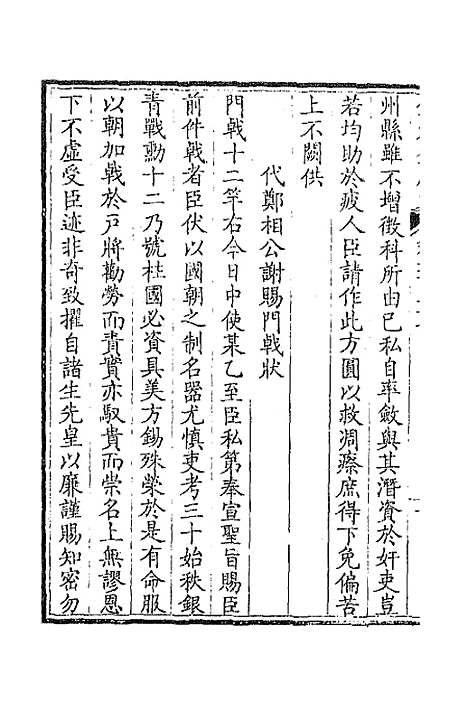 州縣雖不增徵科所由已私自率斂與其潛資於奸吏豈
若均助於疲人臣請作此方圓以救凋瘵庶得下免偏苦
上不闕供
代鄭相公謝賜門戟狀
門戟十二竿右今日中使某乙至臣私第奉宣聖旨賜臣
前件戟者臣伏以國朝之制名器尤慎吏考三十始秩銀
青戰勳十二乃號柱國必資具美方錫殊榮於是有命服
以朝加戟於戸將勸勞而責實亦馭貴而崇名上無謬恩
下不虛受臣迹非奇致擢自諸生先皇以廉謹賜知密勿